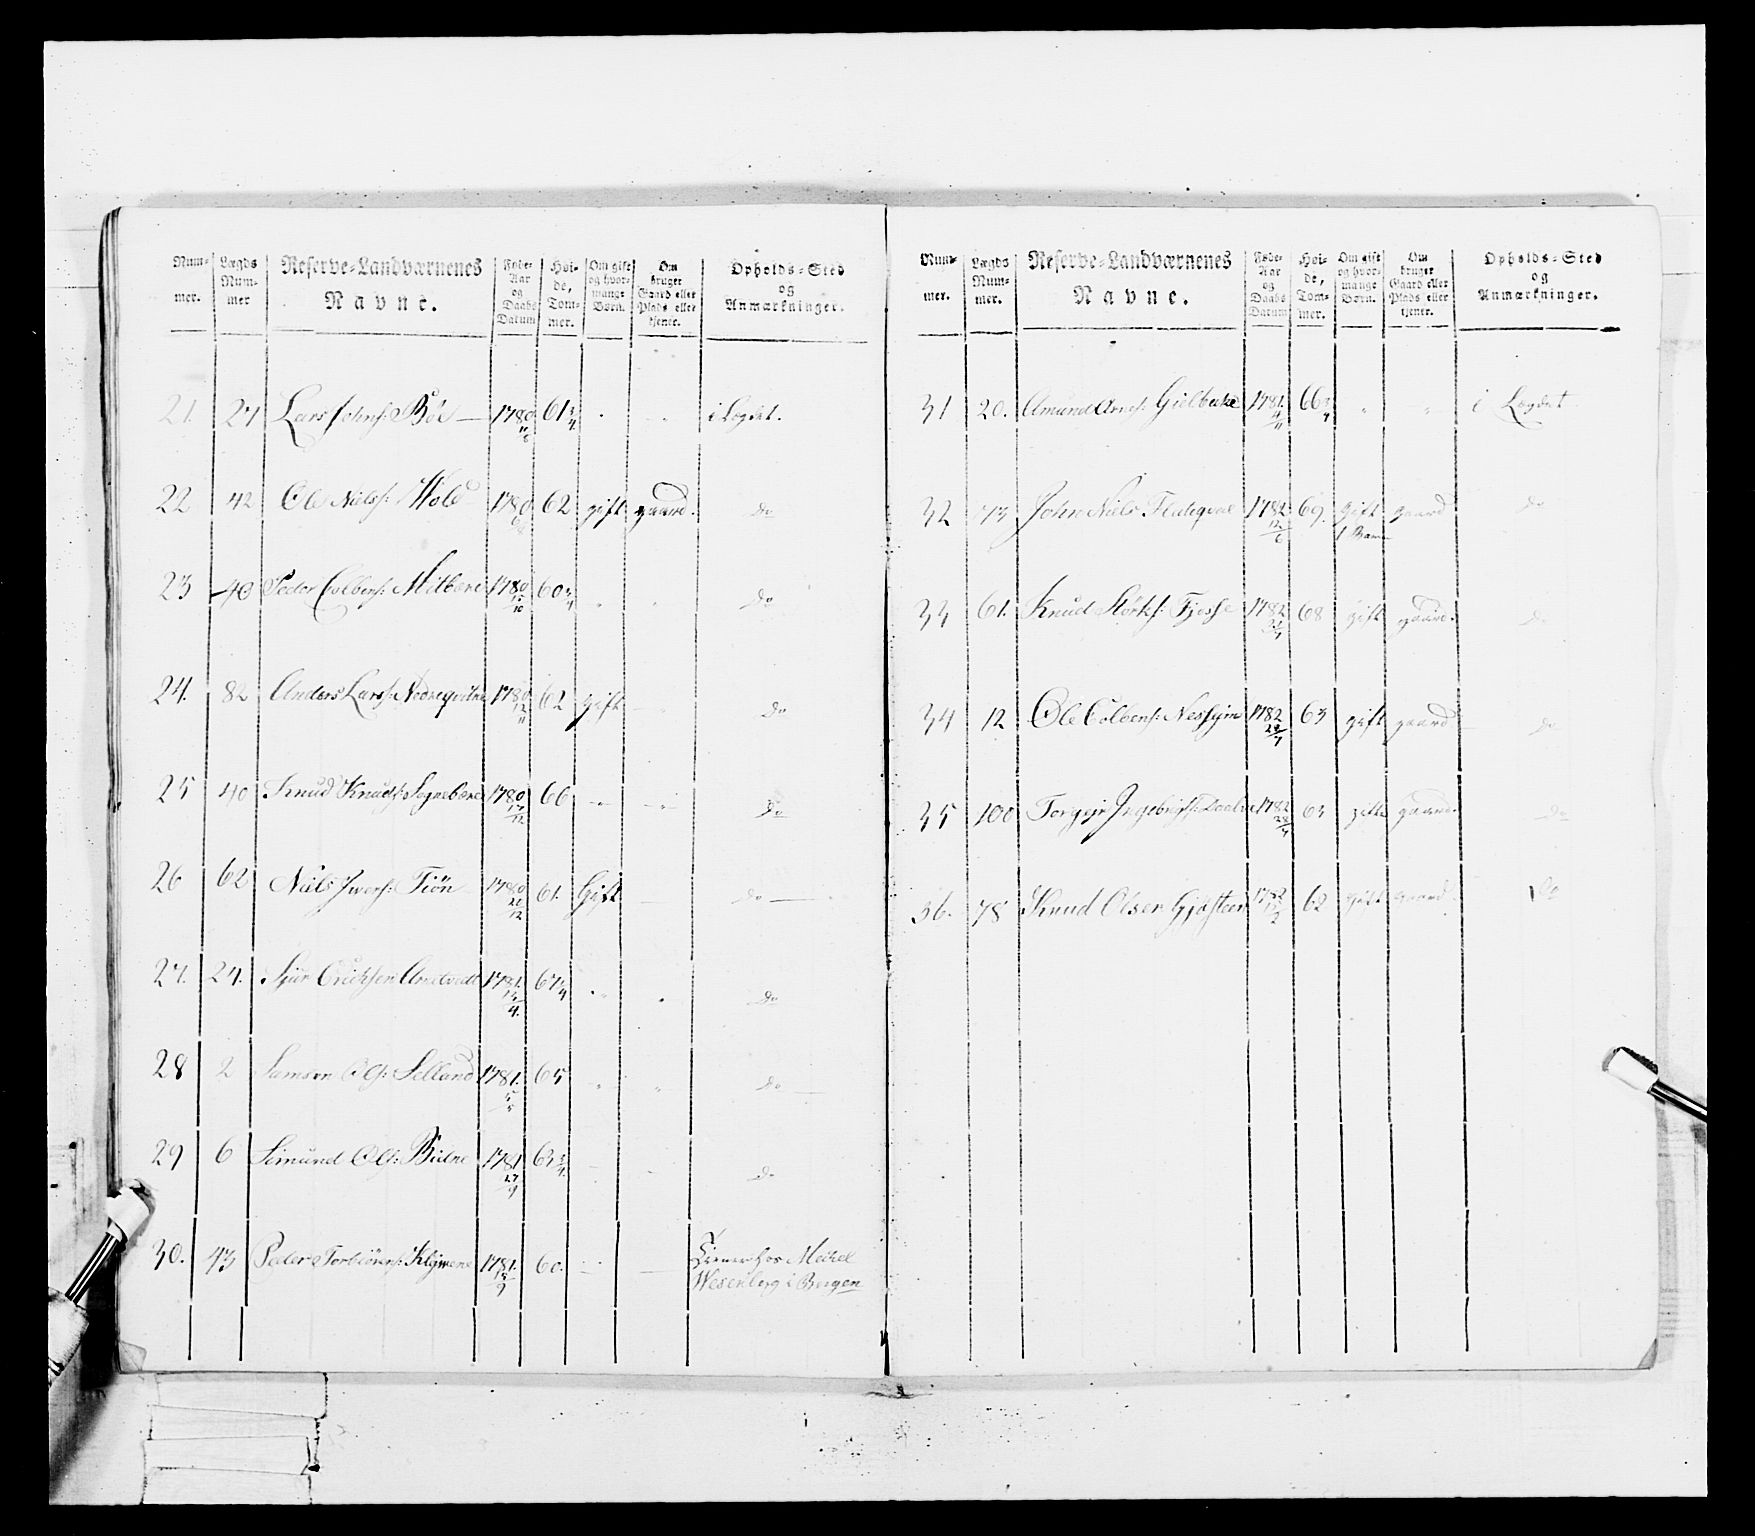 Num-
mer.
Lægds
Num-
mer
Reserve-Landværnenes
Navne.
Føde-
Aar
og
Daabs
Datum
Høi-
de,
Tom-
mer.
Om gift
og hvor-
mange
Børn.
Om
bruger
Gaard eller
Plads eller
tjener.
Opholds-Sted
og
Anmærkninger.
21. 27 Lars Johns: Böe 1780 11/6 61 3/4 " " i Legdet.
22 42 Ole Niels: Wold 1780 62 gift gaard. do
23 40 Peder Colbens: 1780 11/10 60 3/4 " " do
24. 82 Anders Lars: 1780 12/11 62 gift " do
25 40 Knud Knuds: 1780 17/12 66 " " do
26 62 Niels Iwers: Tiön 1780 21/12 61. Gift do
27. 24. Sjur Erichsen 1781. 12/4. 67 3/4 " " do
28 2 Samson Ols: Selland 1781. 5/5 65 " " do
29 6 Simund Ols: 1781 27/9 63 3/4. do
30. 43 Peder Torbiörns: 1781. 18/9 60. Tiener hos Michel
Wesenberg i Bergen
Num-
mer.
Lægds
Num-
mer.
Reserve-Landværnenes
Navne.
Føde-
Aar
og
Daabs
Datum
Høi-
de,
Tom-
mer.
Om gift
og hvor-
mange
Børn.
Om
bruger
Gaard eller
Plads eller
tjener.
Opholds-Sted
og
Anmærkninger.
31 20. Amund Arnes: 1781. 4/11 66 3/4 " " i Legdet
32 73 John Niels 1782 12/6 69. gift gaard do
1 Barn
33 61. Knud Störks: Fjosse 1782 21/7 68 gift gaard. do
34 12 Ole Colbens: 1782 28/7 63 gift gaard do
35 100 Torgejr Ingebrigts: 1782 28/7 63 gift gaard. do
36. 78 Knud Olsen 1782 62 gift gaard. do